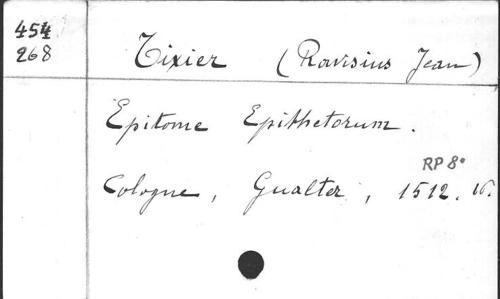 454
268
Tixier (Ravisius Jean)
Epitome Epithetorum.
RP 8°
Cologne, Gualter, 1512. 16.